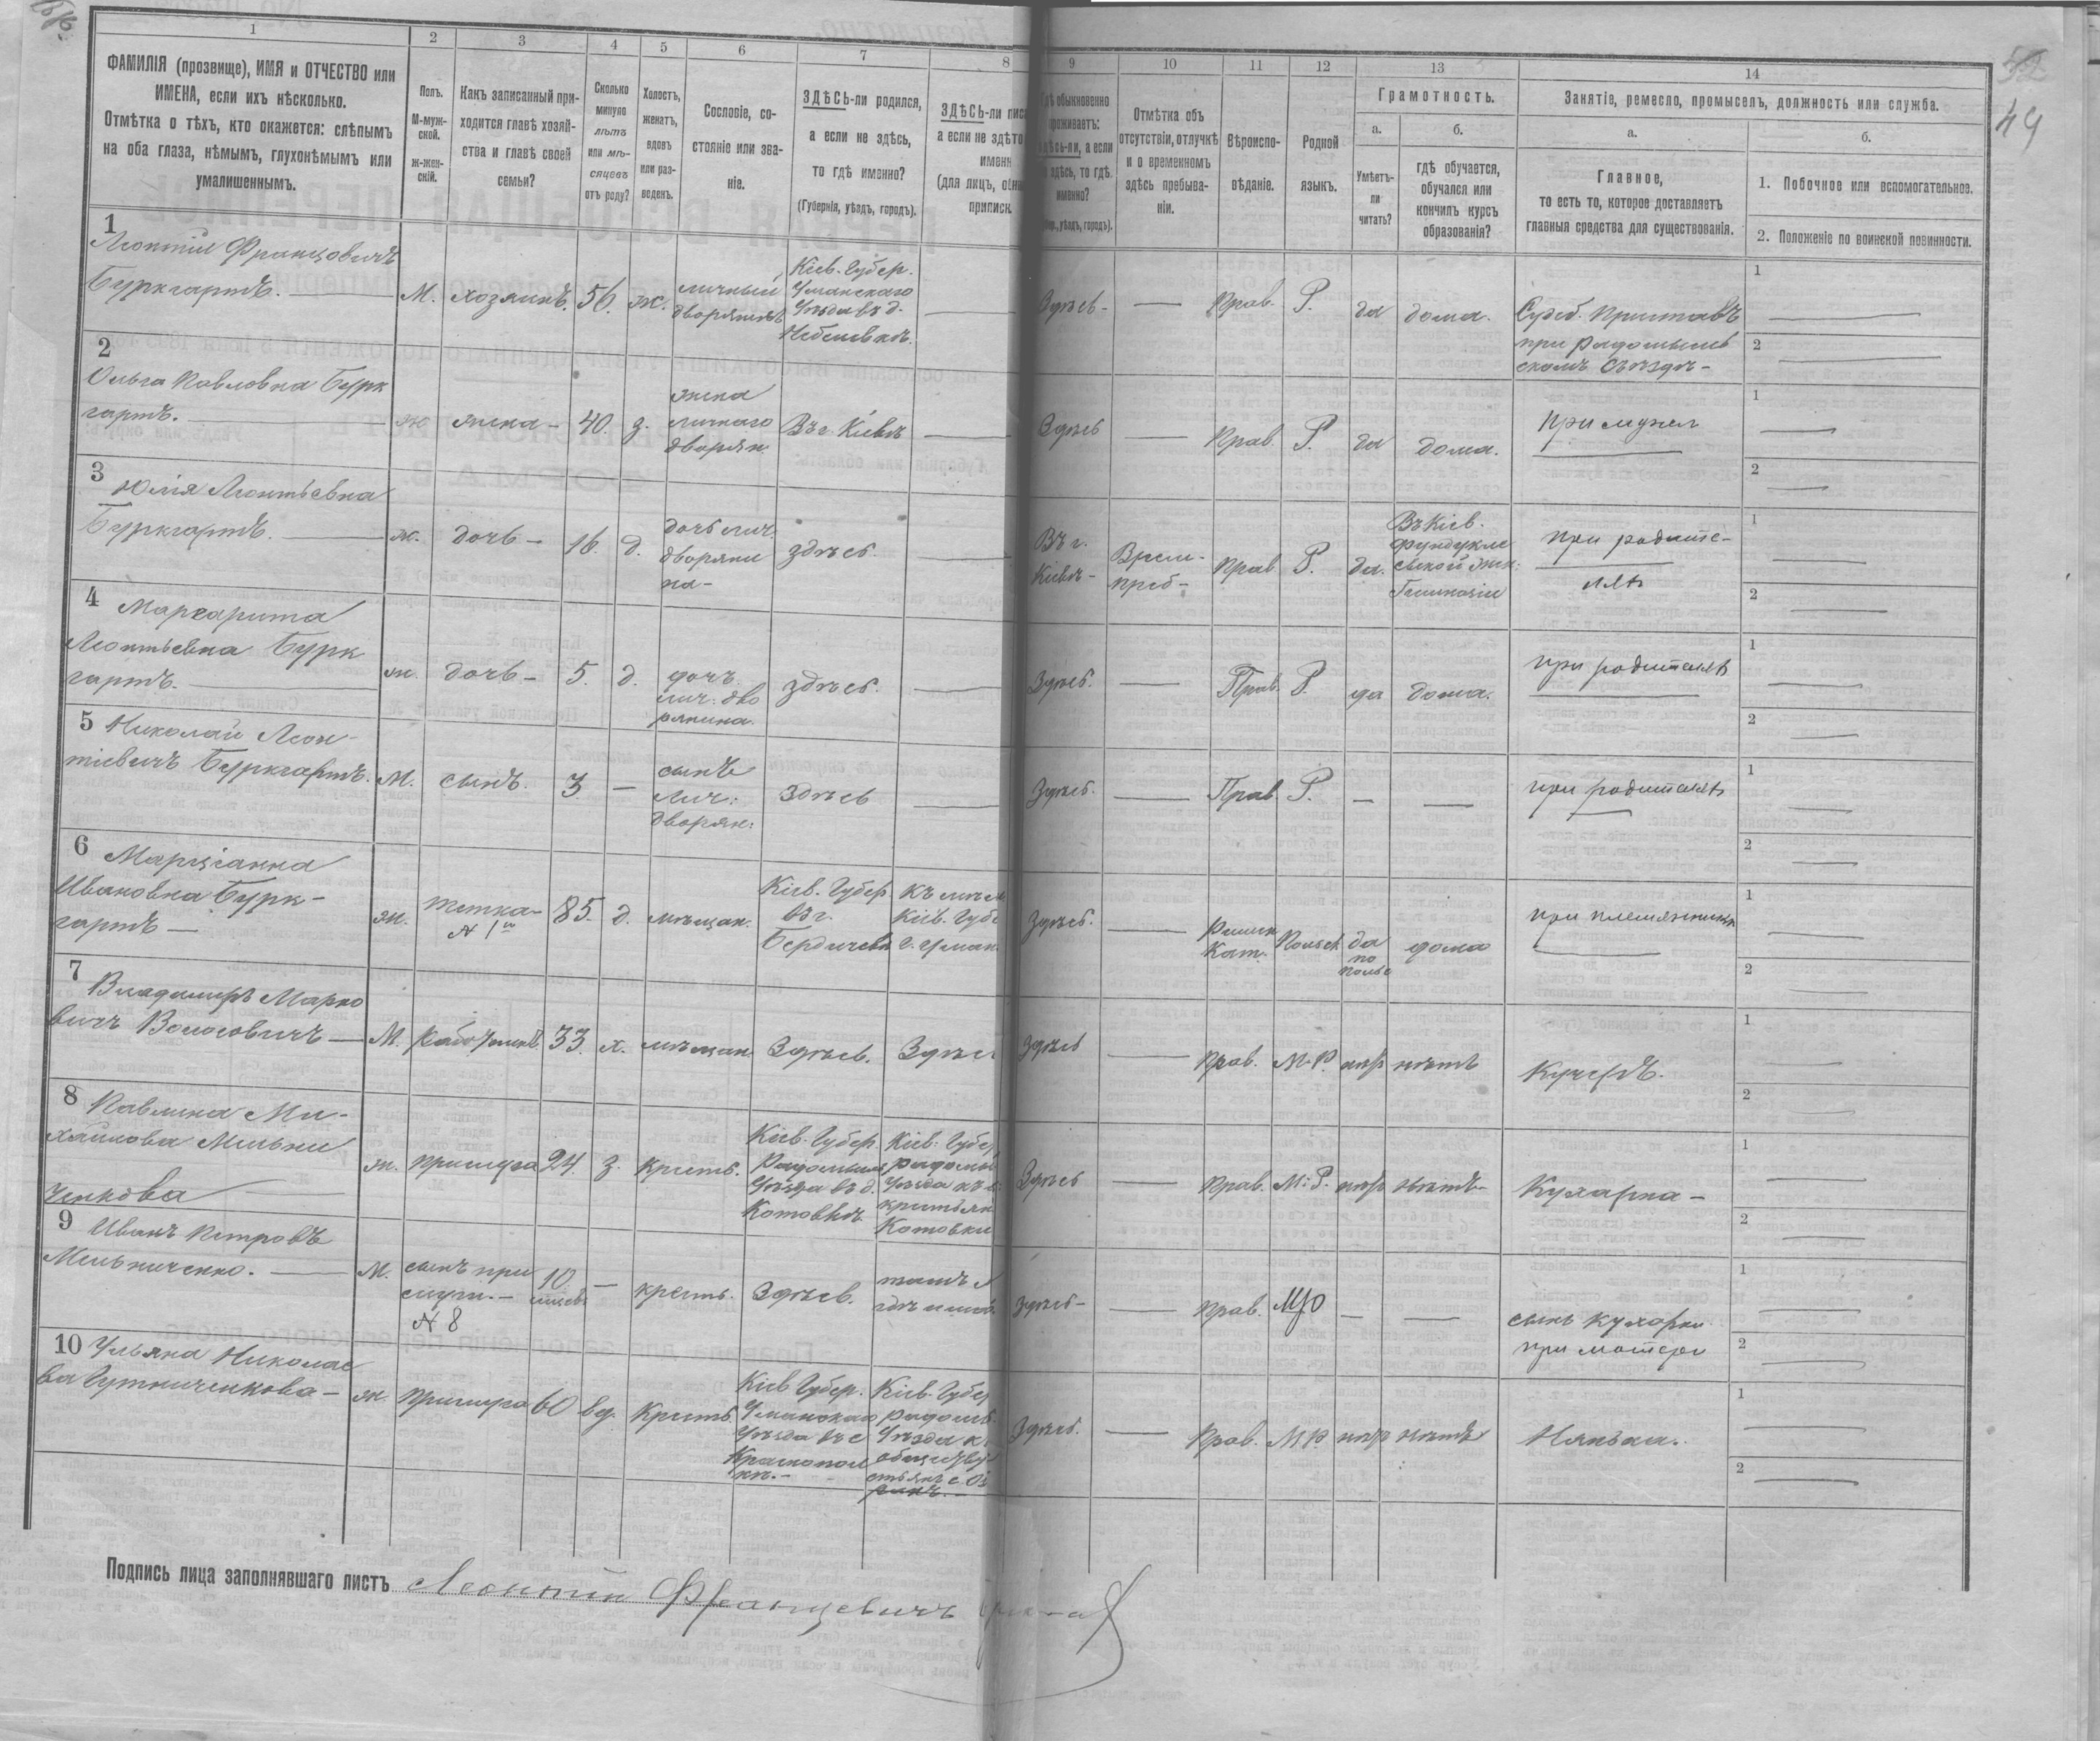 52
49
1
2
3
4
5
6
7
8
9
10
11
12
13
14
ФАМИЛІЯ (прозвище), ИМЯ и ОТЧЕСТВО или
ИМЕНА, если ихъ нѣсколько.
Отмѣтка о тѣхъ, кто окажется: слѣпымъ
на оба глаза, нѣмымъ, глухонѣмымъ или
умалишеннымъ.
Полъ.
М-муж-
ской.
ж-жен-
скій.
Какъ записанный при-
ходится главѣ хозяй-
ства и главѣ своей
семьи?
Сколько
минуло
лѣтъ
или мѣ-
сяцевъ
отъ роду?
Холостъ,
женатъ,
вдовъ
или раз-
веденъ.
Сословіе, со-
стояніе или зва-
ніе.
ЗДѢСЬ-ли родился,
а если не здѣсь,
то гдѣ именно?
(Губернія, уѣздъ, городъ).
ЗДѢСЬ-ли
а если не
приписк.
обыкновенно
проживаетъ:
а если
здѣсь, то гдѣ
именно?
уѣздъ, городъ).
Отмѣтка объ
отсутствіи, отлучкѣ
и о временномъ
здѣсь пребыва-
ніи.
Вѣроиспо-
вѣданіе.
Родной
языкъ.
Грамотность.
а.
б.
Умѣетъ-
ли
читать?
гдѣ обучается,
обучался или
кончилъ курсъ
образованія?
Занятіе, ремесло, промыселъ, должность или служба.
а.
б.
Главное,
то есть то, которое доставляетъ
главныя средства для существованія.
1. Побочное или вспомогательное.
2. Положеніе по воинской повинности.
1
Леонтій Францовичъ
Буркгартъ.
М.
хозяинъ.
56.
ж.
личный
дворянинъ
Кіев. Губер.
Уманскаго
Уѣзда въ д.
Небелевкѣ.
Здѣсь
Прав.
Р.
да
дома.
Судеб. Приставъ
при Радомысль
скомъ Съѣздѣ
1
2
2
Ольга Павловна Бурк
гартъ.
ж
жена
40.
з.
жена
личнаго
дворян.
Въ г. Кіевѣ
Здѣсь
Прав.
Р.
да
дома.
при мужѣ
1
2
3
Юлія Леонтьевна
Буркгартъ.
ж.
дочь
16.
д.
дочь лич.
дворяни
на
здѣсь.
Въ г.
Кіевѣ
Врем.
преб
Прав.
Р.
да.
Въ Кіев.
Фундукле
евской жен.
Гимназіи
при родите-
ляхъ
1
2
4
Маргарита
Леонтьевна Бурк
гартъ.
ж.
дочь
5.
д.
дочь
лич. дво
рянина.
здѣсь.
Здѣсь.
Прав.
Р.
да
дома.
при родителяхъ
1
2
5
Николай Леон-
тіевичъ Буркгартъ.
М.
сынъ.
3
сынъ
лич:
дворян:
здѣсь
Здѣсь.
Прав.
Р.
при родителяхъ
1
2
6
Марціанна
Ивановна Бурк-
гартъ
ж.
тетка
N 1й
85.
д.
мѣщан.
Кіев. Губер
въ г.
Бердичевѣ
Кіев. Губе
г. Уман.
Здѣсь.
Римск
Кат.
Польск.
да
по
польс
дома
при племянникѣ
1
2
7
Владиміръ Марко
вичъ Волосовичъ
М.
работникъ
33.
х.
мѣщан.
Здѣсь.
Здѣсь
Здѣсь
Прав.
М.Р.
нѣтъ
Кучеръ.
1
2
8
Павлина Ми-
хайлова Мельни
ченкова
ж.
прислуга
24.
з.
крест.
Кіев. Губер
Радомысл
Уѣзда въ д.
Котовкѣ
Кіев. Губер
Радомы
Уѣзда
крестьян
Котовки
Здѣсь
Прав.
М.Р.
нѣтъ
Кухарка
1
2
9
Иванъ Петровъ
Мельниченко.
М.
сынъ при
слуги.
N 8
10.
крест.
Здѣсь.
Здѣсь
Прав.
М.Р
сынъ кухарки
при матери
1
2
10
Ульяна Николае
ва
ж.
прислуга
60
вд.
Крест.
Кіев Губер.
Уманскаго
Уѣзда въ с
Кіев. Губер
Радомы
Уѣзда
Здѣсь.
Прав.
М.Р
нѣтъ
Нянька.
1
2
Подпись лица заполнявшаго листъ Леонтій Францевичъ